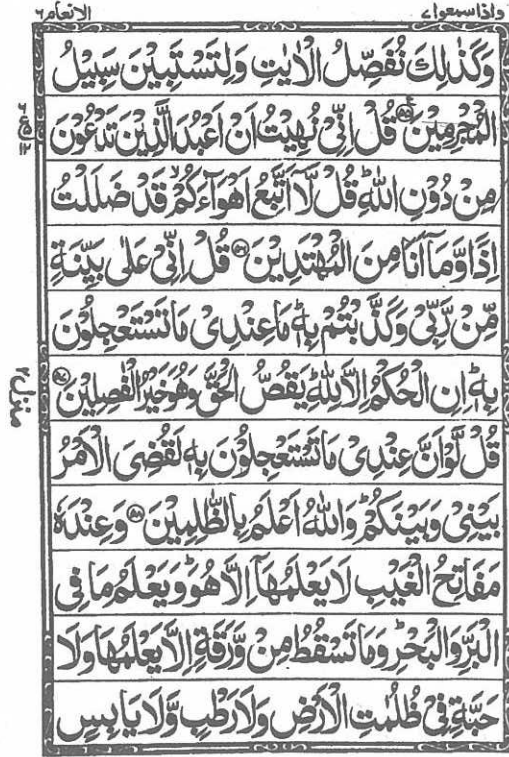 واذا سمعوا ٧
الانعام ٦
وَكَذٰلِكَ نُفَصِّلُ الْاٰيٰتِ وَلِتَسْتَبِيْنَ سَبِيْلُ
الْمُجْرِمِيْنَ ۝۵۵ قُلْ اِنِّيْ نُهِيْتُ اَنْ اَعْبُدَ الَّذِيْنَ تَدْعُوْنَ
مِنْ دُوْنِ اللّٰهِ ؕ قُلْ لَّاۤ اَتَّبِعُ اَهْوَآءَكُمْ ۙ قَدْ ضَلَلْتُ
اِذًا وَّمَاۤ اَنَا مِنَ الْمُهْتَدِيْنَ ۝۵۶ قُلْ اِنِّيْ عَلٰى بَيِّنَةٍ
مِّنْ رَّبِّيْ وَكَذَّبْتُمْ بِهٖ ؕ مَا عِنْدِيْ مَا تَسْتَعْجِلُوْنَ
بِهٖ ؕ اِنِ الْحُكْمُ اِلَّا لِلّٰهِ ؕ يَقُصُّ الْحَقَّ وَهُوَ خَيْرُ الْفٰصِلِيْنَ ۝۵۷
قُلْ لَّوْ اَنَّ عِنْدِيْ مَا تَسْتَعْجِلُوْنَ بِهٖ لَقُضِيَ الْاَمْرُ
بَيْنِيْ وَبَيْنَكُمْ ؕ وَاللّٰهُ اَعْلَمُ بِالظّٰلِمِيْنَ ۝۵۸ وَعِنْدَهٗ
مَفَاتِحُ الْغَيْبِ لَا يَعْلَمُهَاۤ اِلَّا هُوَ ؕ وَيَعْلَمُ مَا فِي
الْبَرِّ وَالْبَحْرِ ؕ وَمَا تَسْقُطُ مِنْ وَّرَقَةٍ اِلَّا يَعْلَمُهَا وَلَا
حَبَّةٍ فِيْ ظُلُمٰتِ الْاَرْضِ وَلَا رَطْبٍ وَّلَا يَابِسٍ
منزل ٢